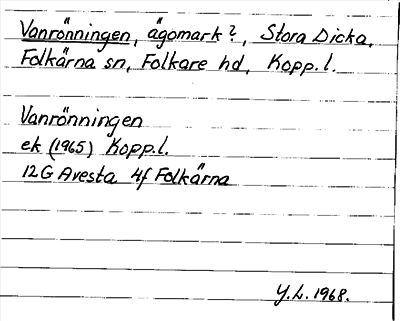 Vanrönningen, ägomark?, Stora Dicka,
Folkärna sn, Folkare hd, Kopp.l.
Vanrönningen
ek (1965) Kopp.l.
12G Avesta 4f Folkärna
Y.L. 1968.